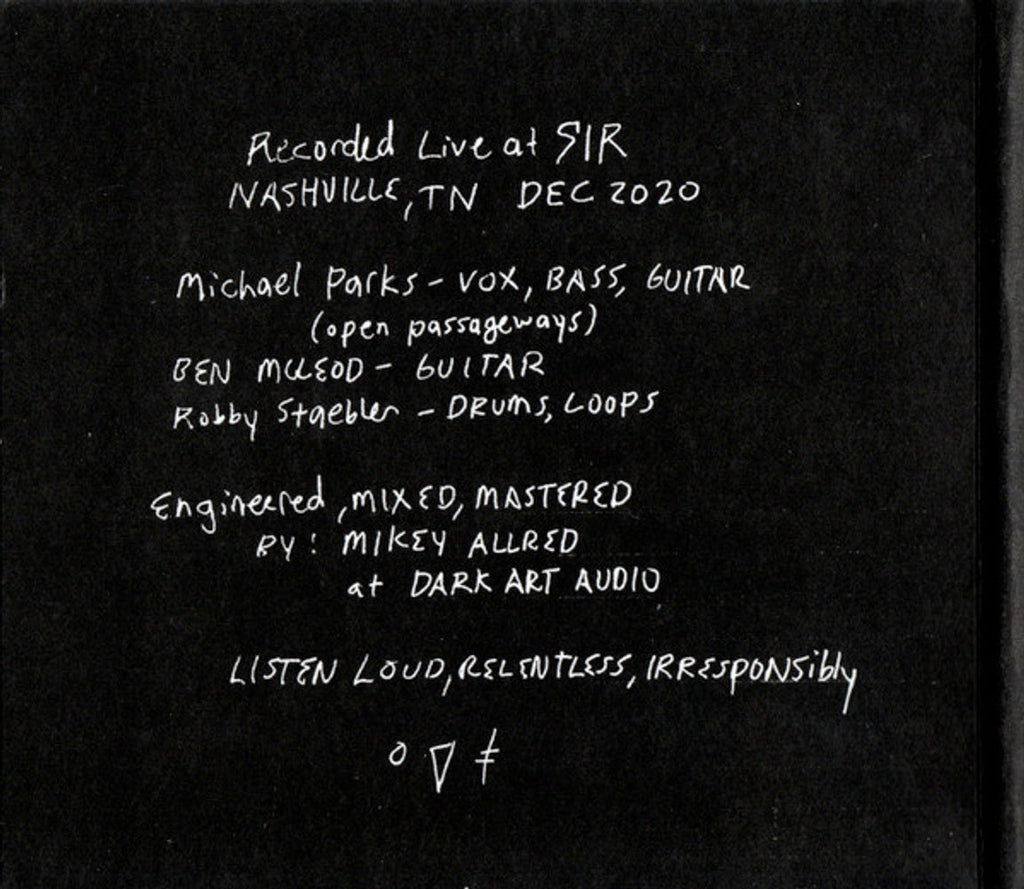 Recorded Live at SIR
NASHVILLE, TN DEC 2020
Michael Parks - VOX, BASS, GUITAR
(open passageways)
BEN McLEOD - GUITAR
Robby Staebler - DRUMS, LOOPS
Engineered, MIXED, MASTERED
BY: MIKEY ALLRED
at DARK ART AUDIO
LISTEN LOUD, RELENTLESS, IRRESPONSibly